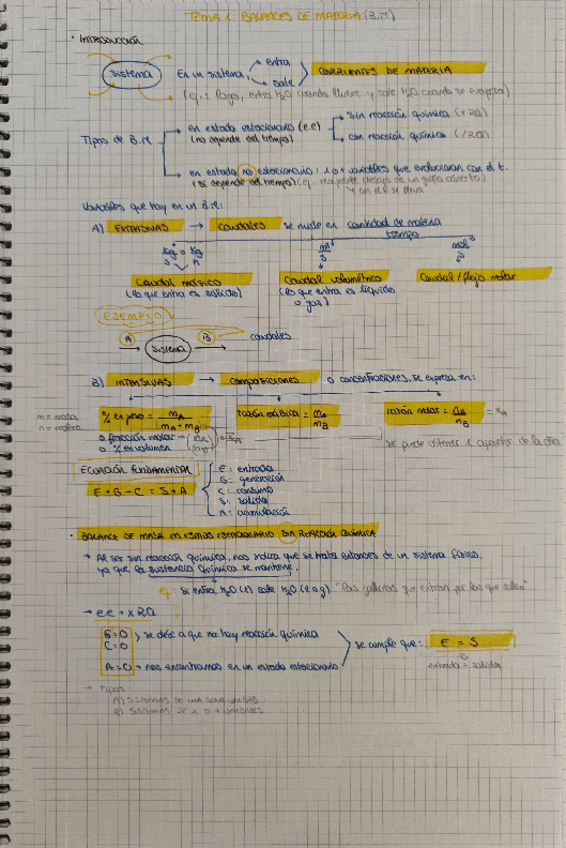 TEMA 1: BALANCES DE MATERIA (B.M)
· INTRODUCCIÓN
Sistema
En un sistema,
entra
sale
CORRIENTES DE MATERIA
(ej.: lago, entra H2O cuando llueve y sale H2O cuando se evapora)
Tipos de B.M
en estado estacionario (e.e)
(no depende del tiempo)
sin reacción química (xRQ)
con reacción química (/RQ)
en estado no estacionario: 1 o + variables que evolucionan con el t.
(sí depende del tiempo) (ej. recipiente debajo de un grifo abierto)
Variables que hay en un B.M:
A) EXTENSIVAS → caudales se mide en cantidad de materia
tiempo
kg/s o kg/h
m³/s
mol/s
Caudal másico
(lo que entra es sólido)
Caudal volumétrico
(lo que entra es líquido
o gas)
Caudal / flujo molar
EJEMPLO
A
Sistema
B
caudales
B) INTENSIVAS → composiciones o concentraciones, se expresa en:
m = masa
n = moles
% en peso = mA / (mA + mB)
o fracción molar
o % en volumen
razón másica = mA / mB
razón molar = nA / nB = XA
se puede obtener a partir de la
ECUACIÓN FUNDAMENTAL
E + G - C = S + A
E: entrada
G: generación
C: consumo
S: salida
A: acumulación
· BALANCE DE MASA EN ESTADO ESTACIONARIO SIN REACCIÓN QUÍMICA
→ Al ser sin reacción química, nos indica que se trata entonces de un sistema físico,
ya que la sustancia química se mantiene.
ej: si entra H2O (l) sale H2O (l o g) "Las gallinas que entran por las que salen"
→ e.e + xRQ
G=0
C=0
se debe a que no hay reacción química
A=0 → nos encontramos en un estado estacionario
se cumple que:
E = S
entrada = salida
→ TIPOS
A) SISTEMAS DE UNA SOLA UNIDAD
B) SISTEMAS DE 2 O + UNIDADES